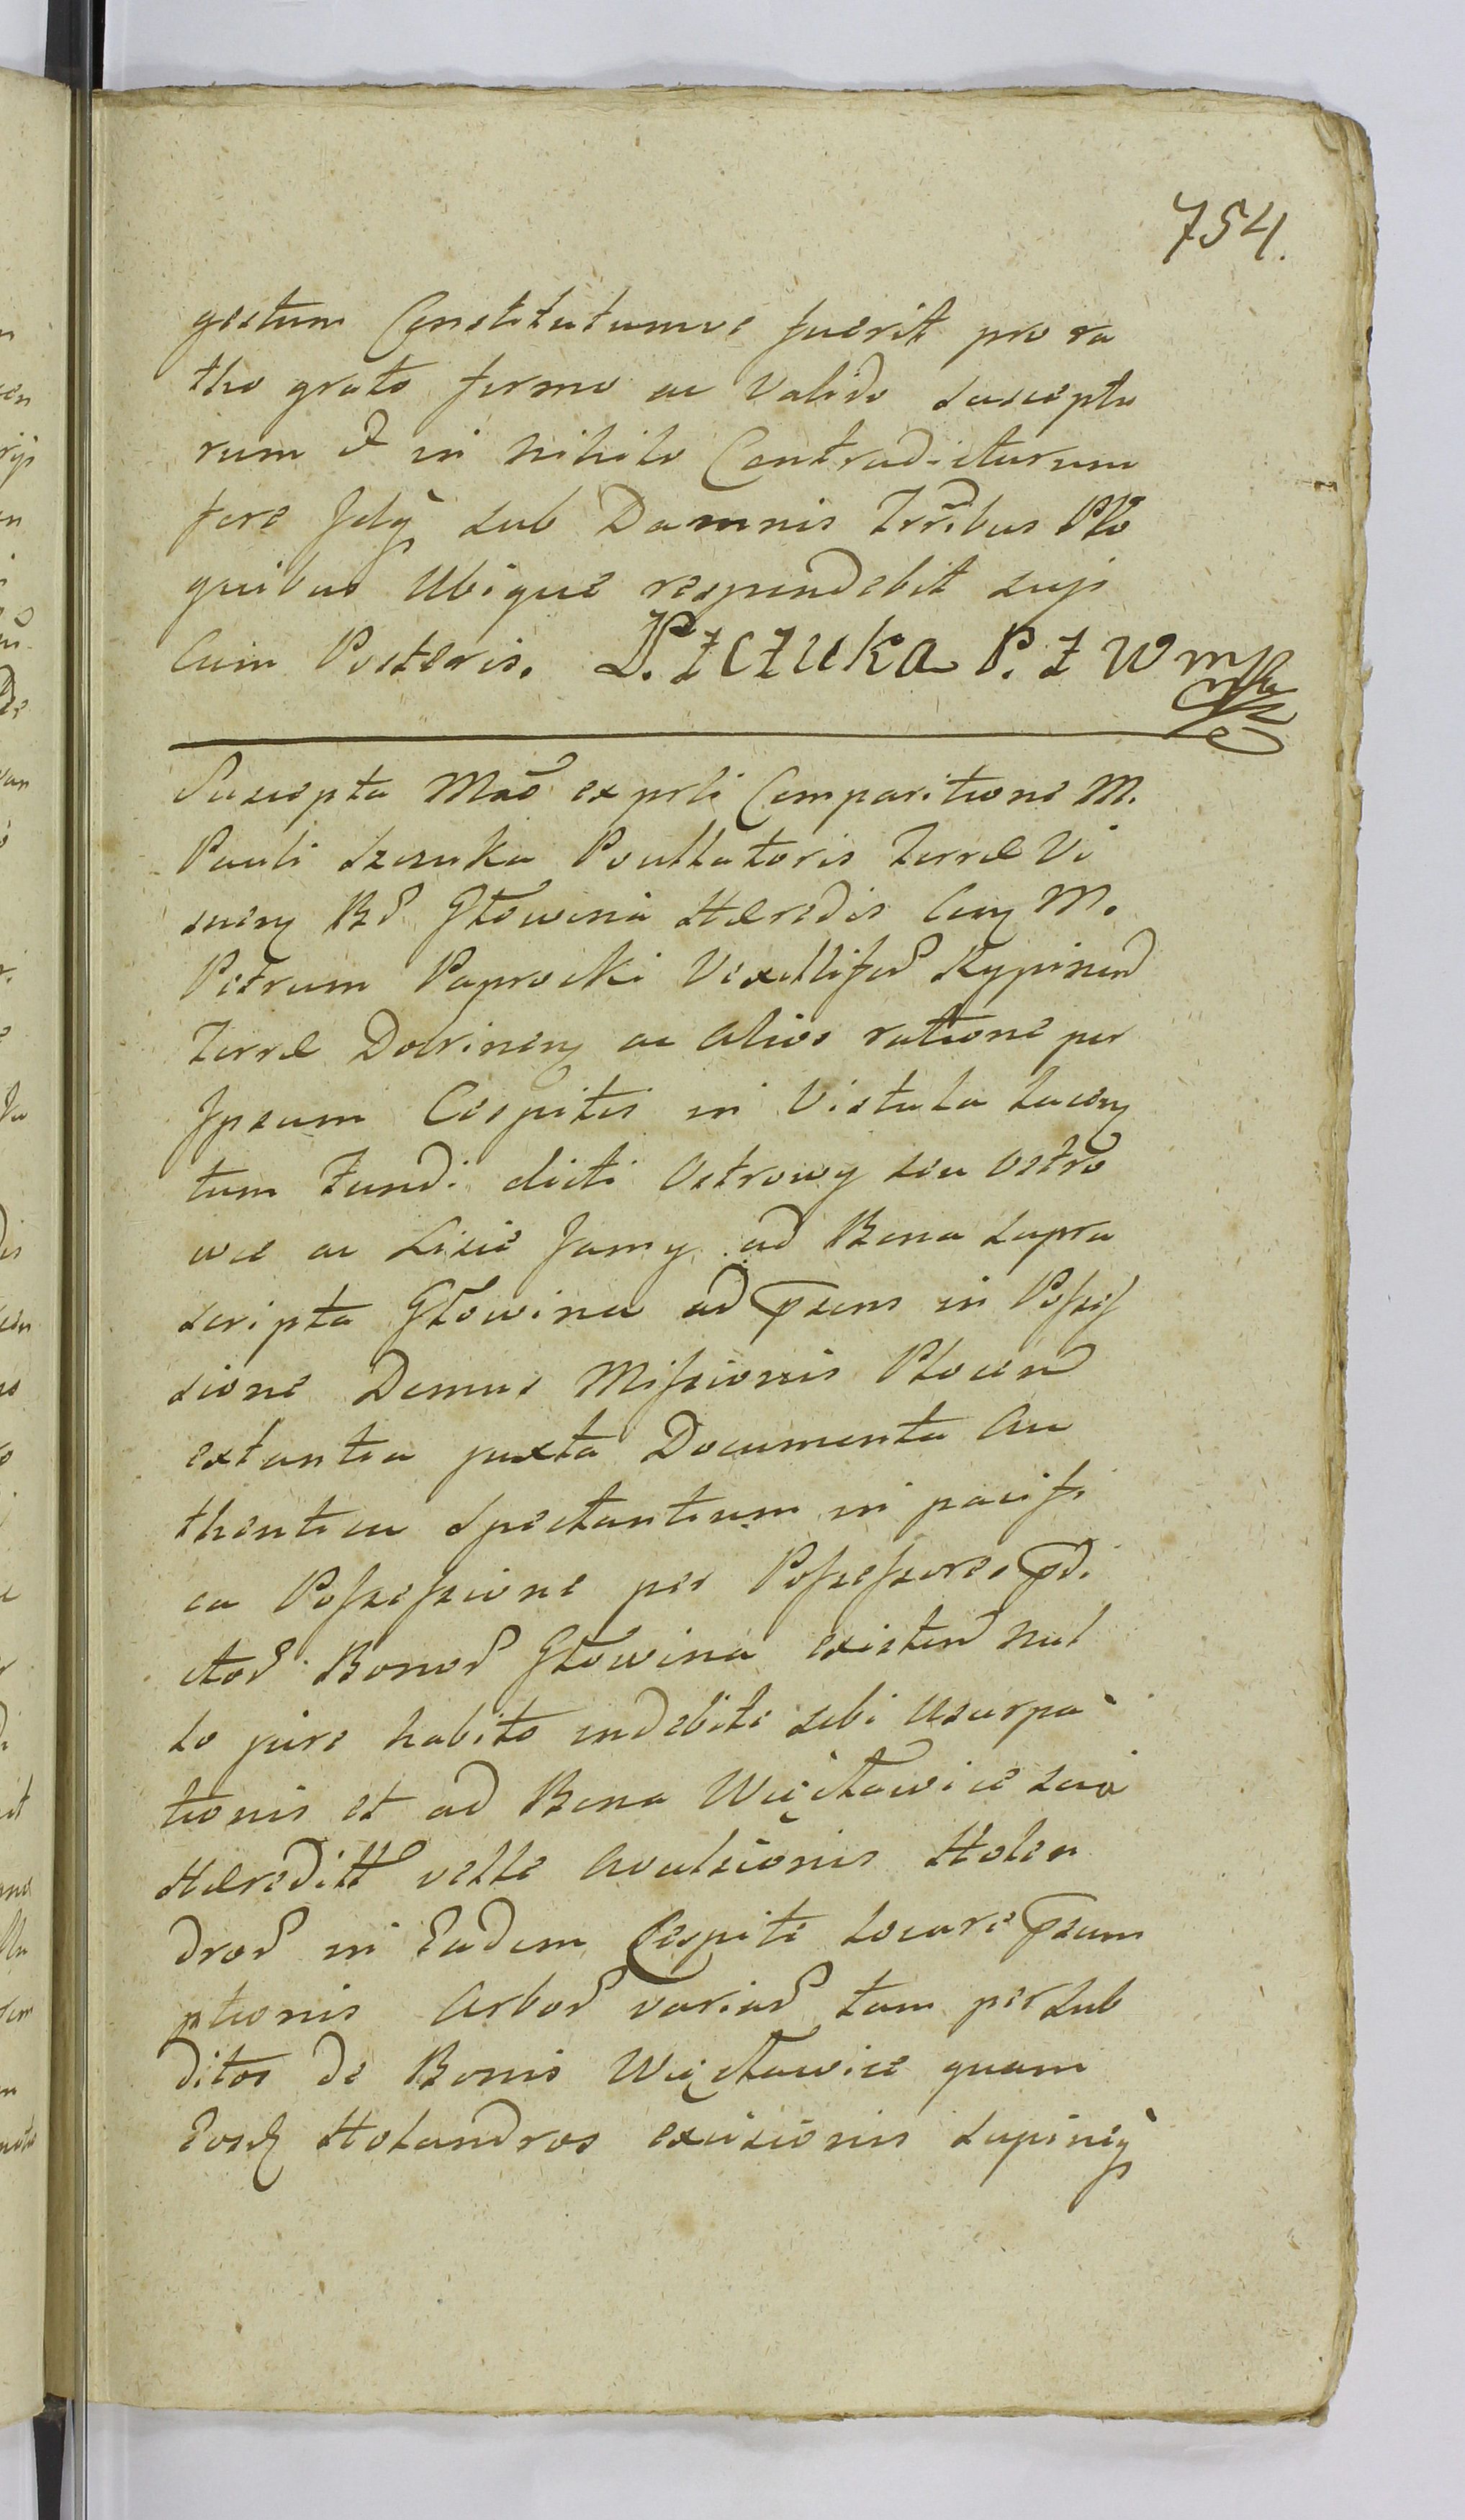 754.
gestum Constitutumve fuerit pro ra
tho grato firmo ac Valido susceptu
rum & in nihilo Contradicturum
fore Idq sub Damnis Trribus Pto
quibus Ubique respondebit suis
Cum Posteris. P. Szczuka P. Z W mp
Suscepta Mao ex prli Comparitione M.
Pauli Szczuka Pocillatoris Terræ Vi
snen Bd Głowina Hæredis Cum M.
Petrum Paprocki Vexillifed Rypinen
Terræ Dobrinen ac Alios ratione per
Ipsum Cespitis in Vistula Lacen
tum Fundi dicti Ostrowy seu Ostro
wce ac Lisie Jamy ad Bona supra
scripta Głowina ad præsens in Posses
sione Domus Missionis Plocen
extantia juxta Documenta Au
thentica Spectantium in pacifi
ca Possessione per Possessores prædi
ctod Bonod Głowina existen nul
lo jure habito indebite sibi Usurpa
tionis et ad Bona Więcławice sua
Hæreditt velle Avulsionis Holen
drod in Eadem Cespite Locare præsum
ptionis Arbod variad tam per Sub
ditos de Bonis Więcławice quam
Eosd Holandros excisionis Lupiniq